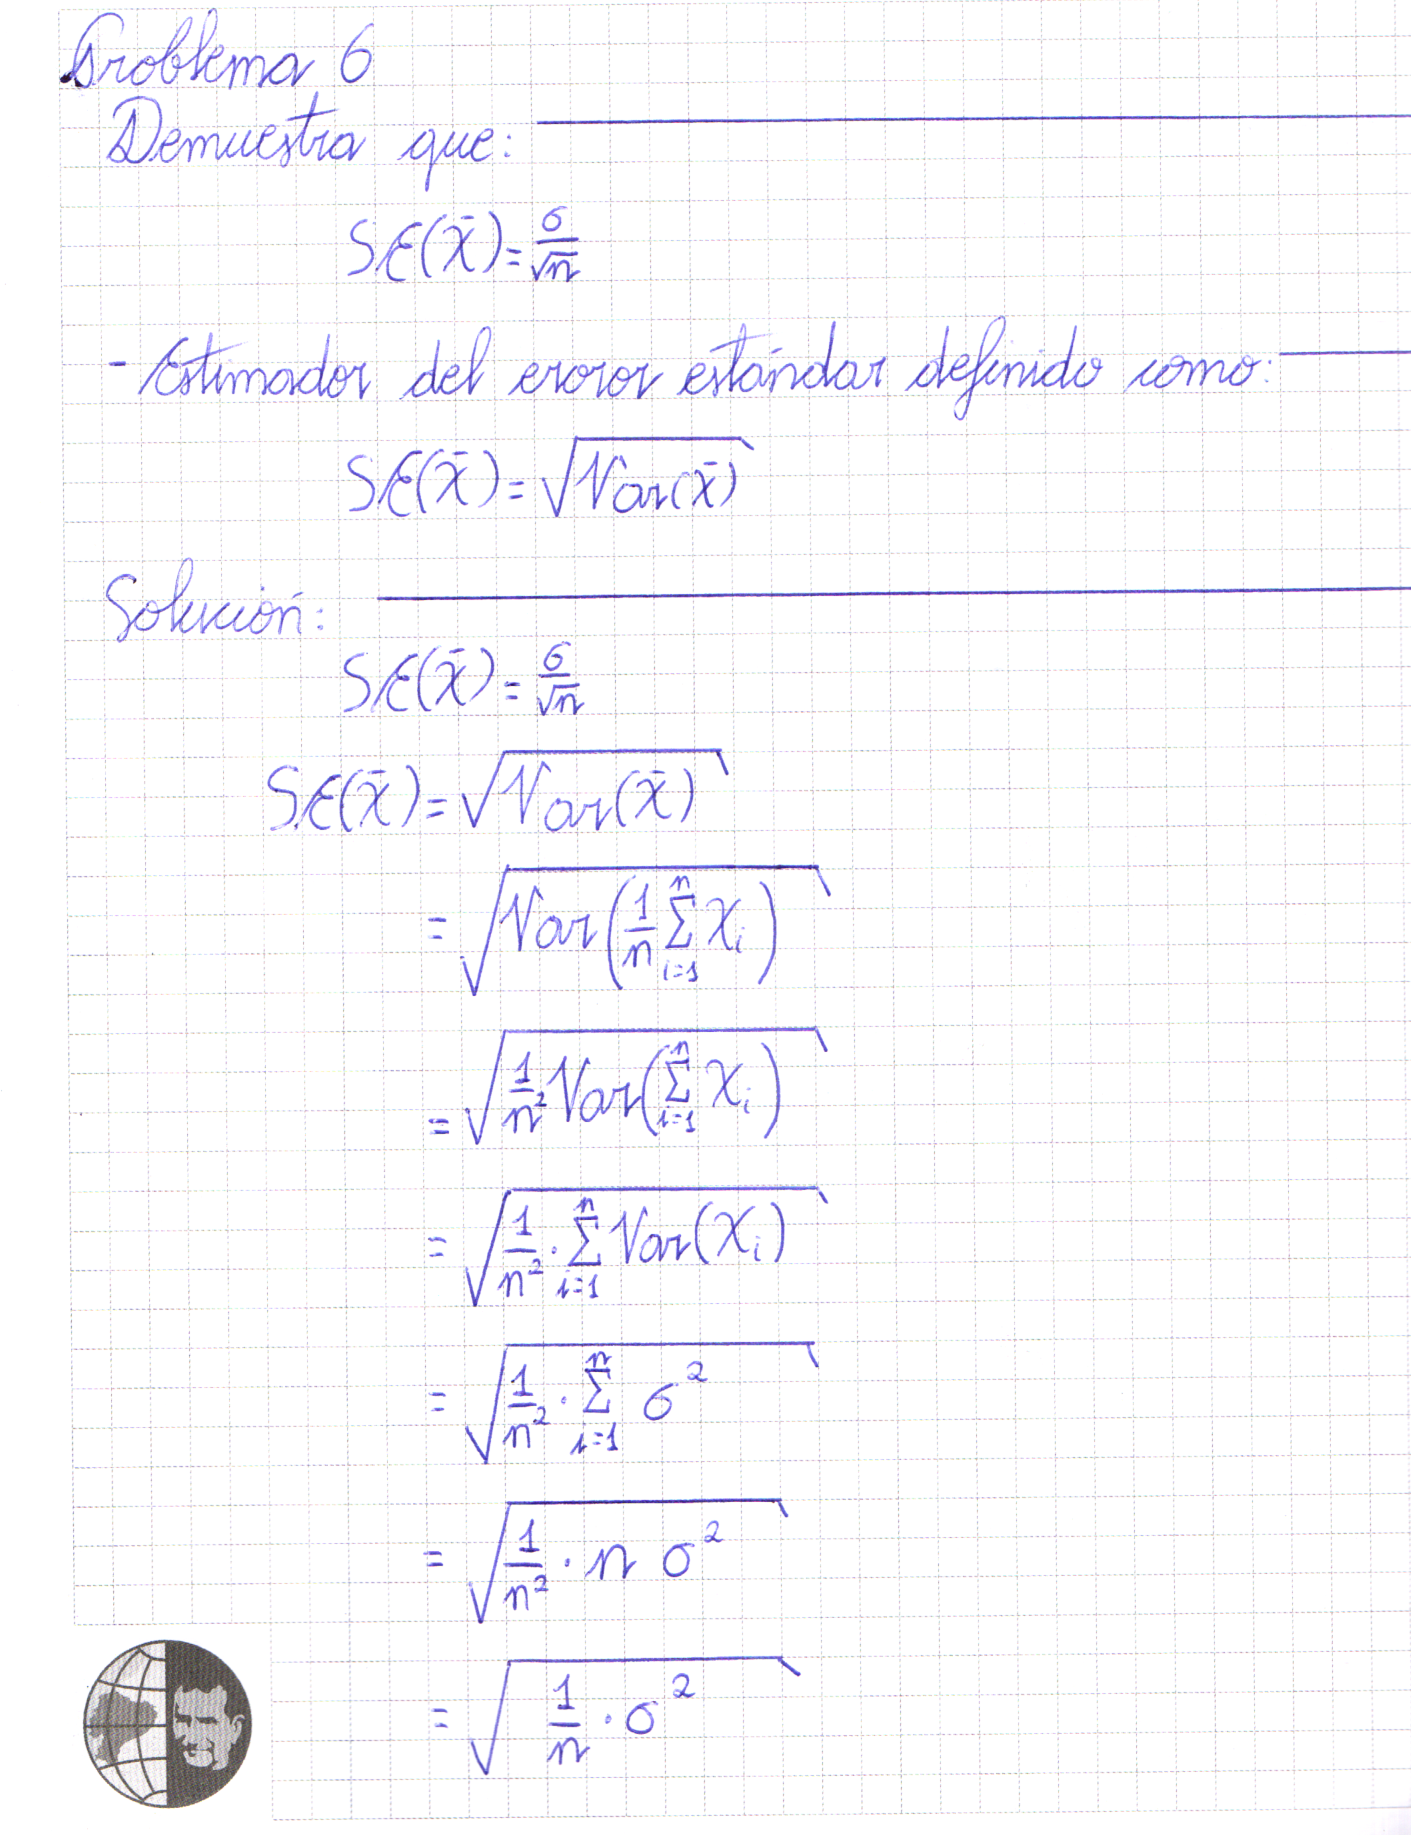 Problema 6
Demuestra que:
SE(x̄) = σ/√n
- Estimador del error estándar definido como:
SE(x̄) = √Var(x̄)
Solución:
SE(x̄) = σ/√n
SE(x̄) = √Var(x̄)
= √Var(1/n ∑ᵢ₌₁ⁿ Xᵢ)
= √1/n² Var(∑ᵢ₌₁ⁿ Xᵢ)
= √1/n² · ∑ᵢ₌₁ⁿ Var(Xᵢ)
= √1/n² · ∑ᵢ₌₁ⁿ σ²
= √1/n² · n σ²
= √1/n · σ²